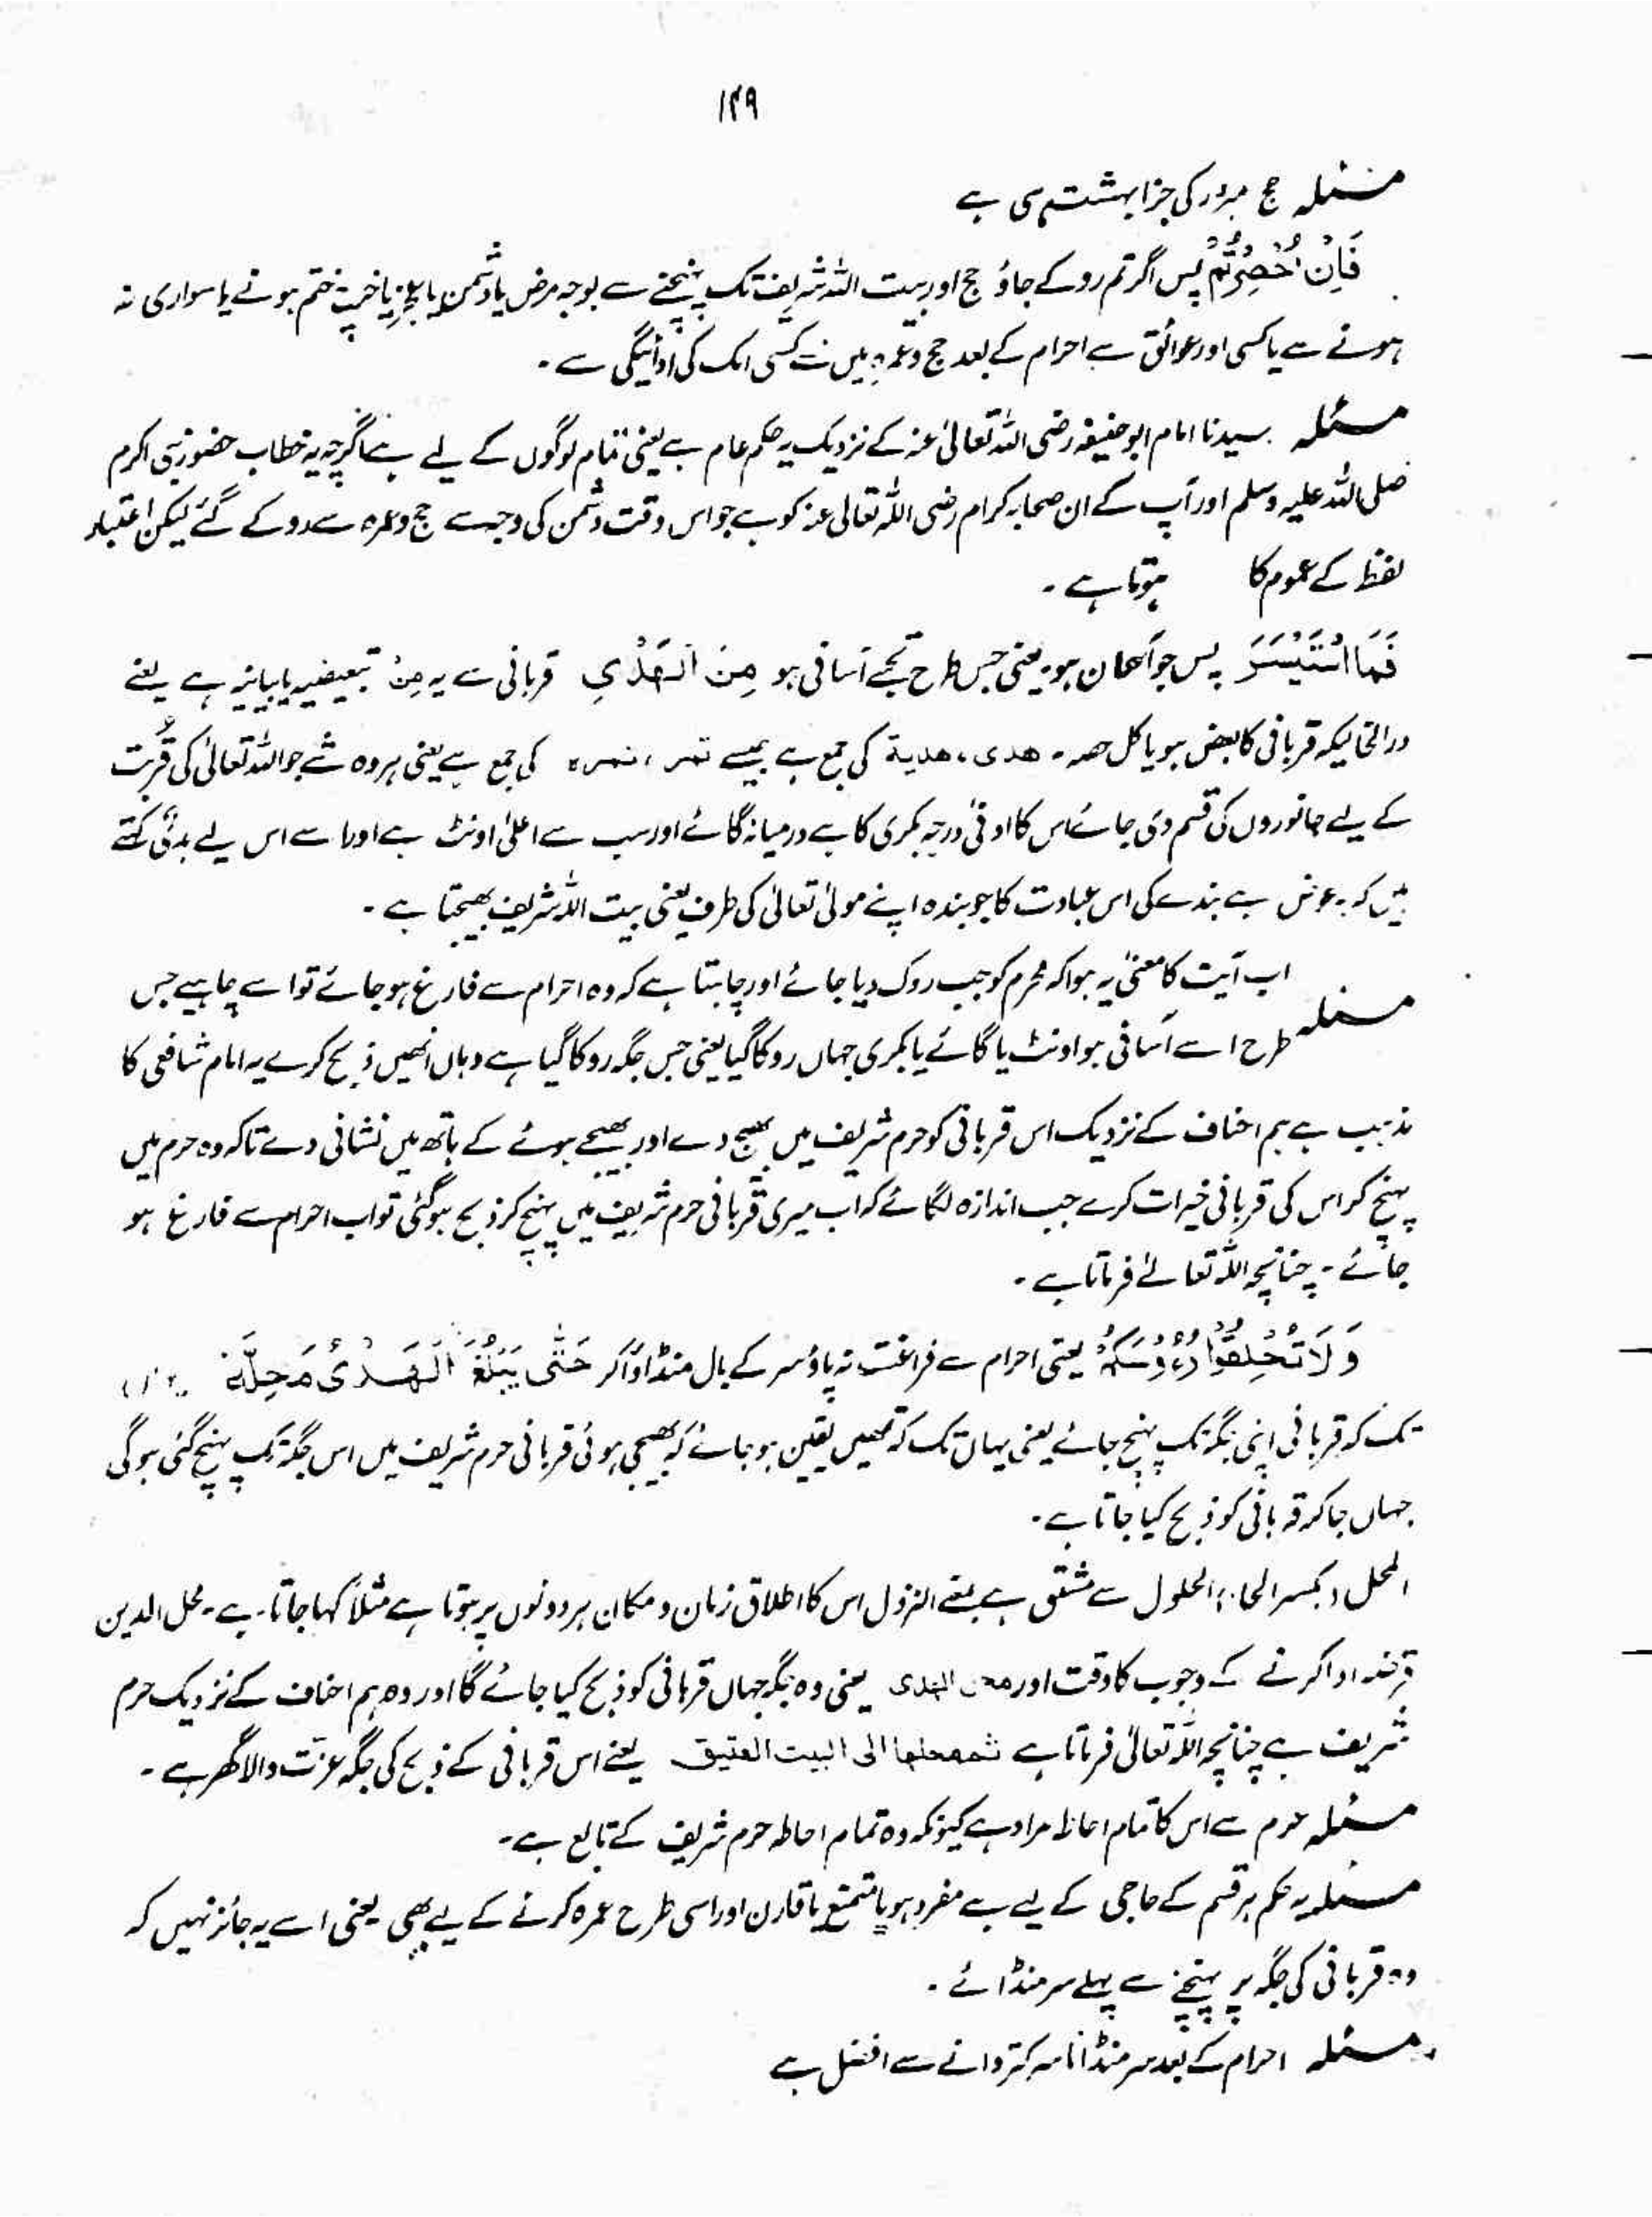 ۱۴۹
مسئلہ حج مبرور کی جزا بہشت ہی ہے
فَاِنْ اُحْصِرْتُمْ پس اگر تم روکے جاؤ حج اور بیت اللہ شریف تک پہنچنے سے بوجہ مرض یا دشمن یا عجز یا خرچ ختم ہونے یا سواری نہ
ہونے سے یا کسی اور عوائق سے احرام کے بعد حج و عمرہ میں سے کسی ایک کی ادائیگی سے ۔
مسئلہ سیدنا امام ابو حنیفہ رضی اللہ تعالیٰ عنہ کے نزدیک یہ حکم عام ہے یعنی تمام لوگوں کے لیے ہے اگرچہ یہ خطاب حضور نبی اکرم
صلی اللہ علیہ وسلم اور آپ کے ان صحابہ کرام رضی اللہ تعالیٰ عنہ کو ہے جو اس وقت دشمن کی وجہ سے حج و عمرہ سے روکے گئے لیکن اعتبار
لفظ کے عموم کا ہوتا ہے ۔
فَمَا اسْتَيْسَرَ پس جو آسان ہو یعنی جس طرح تجھے آسانی ہو مِنَ الْهَدْيِ قربانی سے یہ مِنْ تبعیضیہ یا بیانیہ ہے یعنے
درانحالیکہ قربانی کا بعض ہو یا کل حصہ ۔ ھدی ، ھدیة کی جمع ہے جیسے تمر ، تمرہ کی جمع ہے یعنی ہر وہ شے جو اللہ تعالیٰ کی قُربت
کے لیے جانوروں کی قسم دی جائے اس کا ادنیٰ درجہ بکری کا ہے درمیانہ گائے اور سب سے اعلیٰ اونٹ ہے اور اسے اس لیے ہدی کہتے
ہیں کہ یہ عوض ہے بندے کی اس عبادت کا جو بندہ اپنے مولیٰ تعالیٰ کی طرف یعنی بیت اللہ شریف بھیجتا ہے ۔
اب آیت کا معنیٰ یہ ہوا کہ محرم کو جب روک دیا جائے اور چاہتا ہے کہ وہ احرام سے فارغ ہو جائے تو اسے چاہیے جس
مسئلہ طرح اسے آسانی ہو اونٹ یا گائے یا بکری جہاں روکا گیا یعنی جس جگہ روکا گیا ہے وہاں انھیں ذبح کرے یہ امام شافعی کا
مذہب ہے ہم احناف کے نزدیک اس قربانی کو حرم شریف میں بھیج دے اور بھیجے ہوئے کے ہاتھ میں نشانی دے تاکہ وہ حرم میں
پہنچ کر اس کی قربانی خیرات کرے جب اندازہ لگائے کہ اب میری قربانی حرم شریف میں پہنچ کر ذبح ہو گئی تو اب احرام سے فارغ ہو
جائے ۔ چنانچہ اللہ تعالےٰ فرماتا ہے ۔
وَلَا تَحْلِقُوْا رُءُوْسَكُمْ یعنی احرام سے فراغت نہ پاؤ سر کے بال منڈاوَا کر حَتّٰى يَبْلُغَ الْهَدْىُ مَحِلَّهٗ
تک کہ قربانی اپنی جگہ تک پہنچ جائے یعنی یہاں تک کہ تمھیں یقین ہو جائے کہ بھیجی ہوئی قربانی حرم شریف میں اس جگہ تک پہنچ گئی ہوگی
جہاں جا کر قربانی کو ذبح کیا جاتا ہے ۔
المحل ، بکسر الحا ، الحلول سے مشتق ہے بمعنے النزول اس کا اطلاق زمان و مکان ہر دونوں پر ہوتا ہے مثلاً کہا جاتا ہے ۔ محل الدین
قرضہ ادا کرنے کے وجوب کا وقت اور محل الہدی یعنی وہ جگہ جہاں قربانی کو ذبح کیا جائے گا اور وہ ہم احناف کے نزدیک حرم
شریف ہے چنانچہ اللہ تعالیٰ فرماتا ہے ثم محلہا الی البیت العتیق یعنے اس قربانی کے ذبح کی جگہ عزت والا گھر ہے ۔
مسئلہ حرم سے اس کا تمام احاطہ مراد ہے کیونکہ وہ تمام احاطہ حرم شریف کے تابع ہے ۔
مسئلہ یہ حکم ہر قسم کے حاجی کے لیے ہے مفرد ہو یا متمتع یا قارن اور اسی طرح عمرہ کرنے کے لیے بھی یعنی اسے یہ جائز نہیں کہ
وہ قربانی کی جگہ پر پہنچنے سے پہلے سر منڈائے ۔
مسئلہ احرام کے بعد سر منڈانا سر کتروانے سے افضل ہے